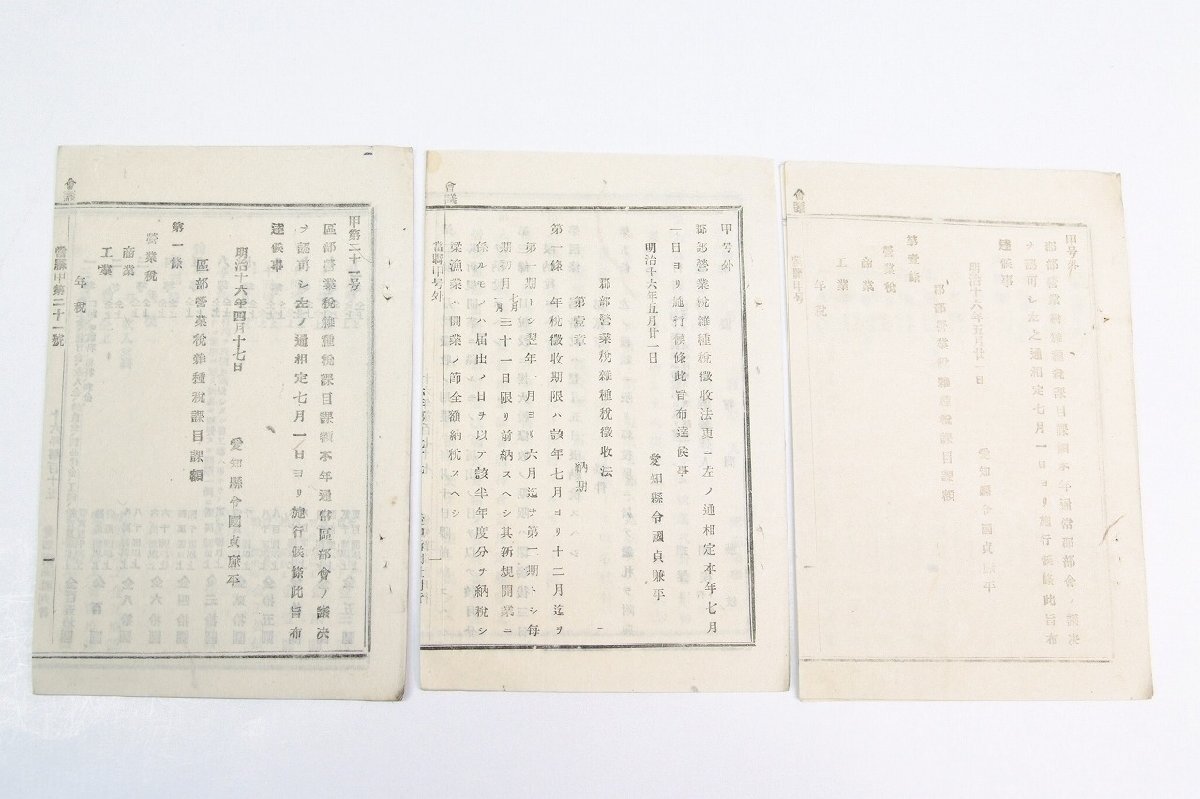 甲号外
郡部營業稅雜種稅課目課額本年通常郡部會ノ議決
ヲ認可シ左之通相定七月一日ヨリ施行候條此旨布
達候事
明治十六年五月廿一日
愛知縣令國貞廉平
郡部營業稅雜種稅課目課額
第壹條
營業稅
商業
工業
年稅
甲号外
郡部營業稅雜種稅徵收法更ニ左ノ通相定本年七月
一日ヨリ施行候條此旨布達候事
明治十六年五月廿一日
愛知縣令國貞廉平
郡部營業稅雜種稅徵收法
第壹章
納期
第一條年稅徵收期限ハ該年七月ヨリ十二月迄ヲ
第一期トシ翌年一月ヨリ六月迄ヲ第二期トシ每
期初月三十一日限リ前納スヘシ其新規開業ニ
係ルモノハ届出ノ日ヲ以テ該半年度分ヲ納稅シ
梁漁業ハ開業ノ節全額納稅スヘシ
當縣甲号外
一
甲第二十一号
區部營業稅雜種稅課目課額本年通常區部會ノ議決
ヲ認可シ左ノ通相定七月一日ヨリ施行候條此旨布
達候事
明治十六年四月十七日
愛知縣令國貞廉平
區部營業稅雜種稅課目課額
第一條
營業稅
商業
工業
年稅
當縣甲第二十一號
一